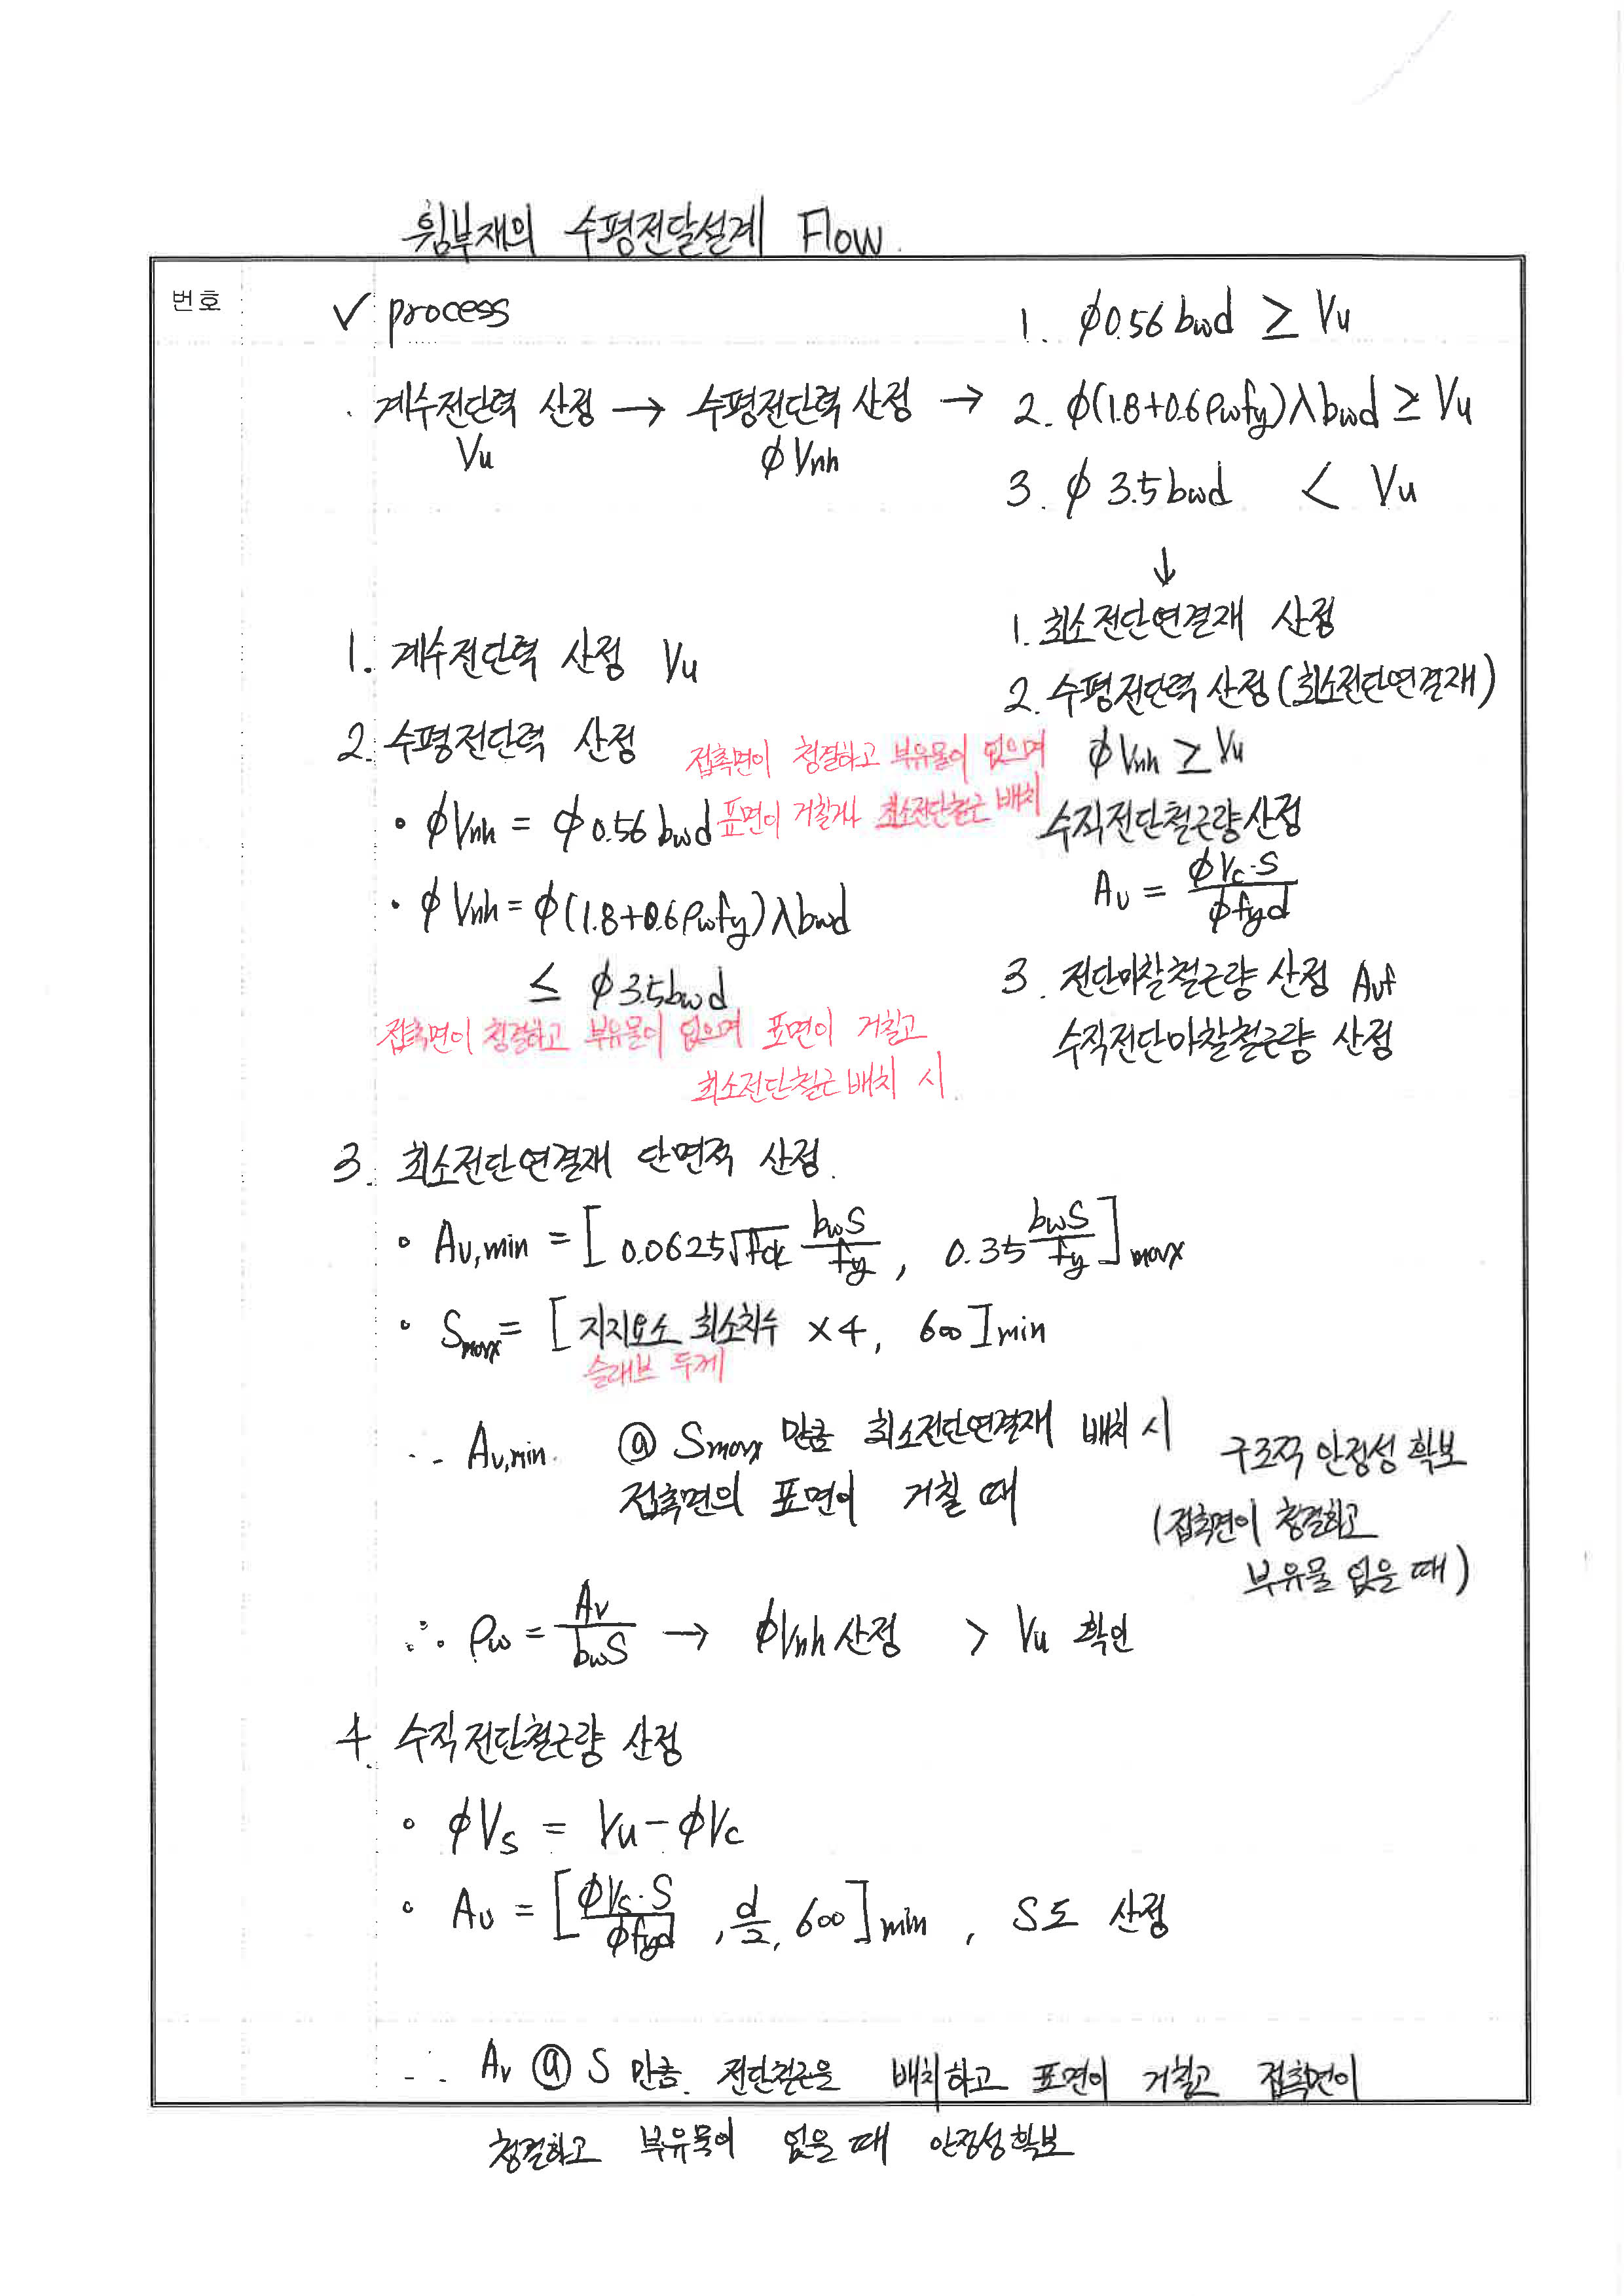 휨부재의 수평전달설계 Flow.
번호
✓ process
· 계수전단력 산정 → 수평전단력 산정 →
Vu ϕVnh
1. ϕ0.56bwd ≥ Vu
2. ϕ(1.8+0.6ρwfy)λbwd ≥ Vu
3. ϕ3.5bwd < Vu
↓
1. 최소전단연결재 산정
2. 수평전단력 산정(최소전단연결재)
ϕVnh ≥ Vu
수직전단철근량 산정
Av = ϕVc·S / ϕfyd
3. 전단마찰철근량 산정 Avf
수직전단마찰철근량 산정
1. 계수전단력 산정 Vu
2. 수평전단력 산정
접촉면이 청결하고 부유물이 없으며
• ϕVnh = ϕ0.56bwd 표면이 거칠거나 최소전단철근 배치
• ϕVnh = ϕ(1.8+0.6ρwfy)λbwd
≤ ϕ3.5bwd
접촉면이 청결하고 부유물이 없으며 표면이 거칠고
최소전단철근 배치 시.
3. 최소전단연결재 단면적 산정.
• Av,min = [0.0625√fck bwS/fy, 0.35 bwS/fy]max
• Smax = [지지요소 최소치수 ×4, 600]min
슬래브 두께
∴ Av,min. @ Smax 만큼 최소전단연결재 배치 시
접촉면의 표면이 거칠 때
구조적 안정성 확보
(접촉면이 청결하고
부유물 없을 때)
∴ ρw = Av / bwS → ϕVnh 산정 > Vu 확인
4. 수직전단철근량 산정
• ϕVs = Vu - ϕVc
• Av = [ϕVs·S / ϕfyd, d/2, 600]min, S도 산정
∴ Av @ S 만큼. 전단철근을 배치하고 표면이 거칠고 접촉면이
청결하고 부유물이 없을 때 안정성 확보